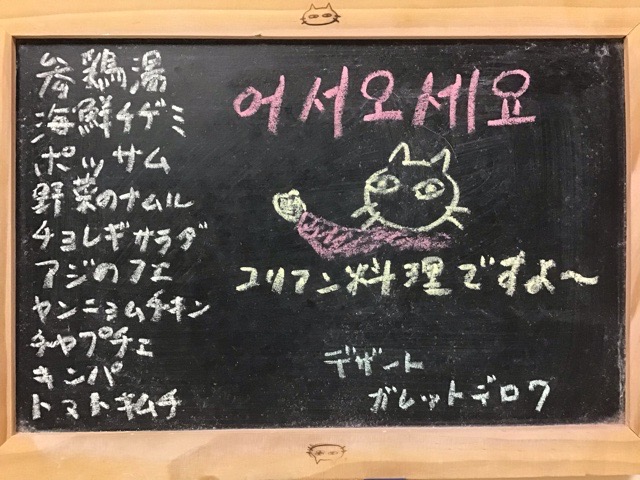 参鶏湯
海鮮チヂミ
ポッサム
野菜のナムル
チョレギサラダ
アジのフェ
ヤンニョムチキン
チャプチェ
キンパ
トマトキムチ
어서오세요
コリアン料理ですよ〜
デザート
ガレットデロワ